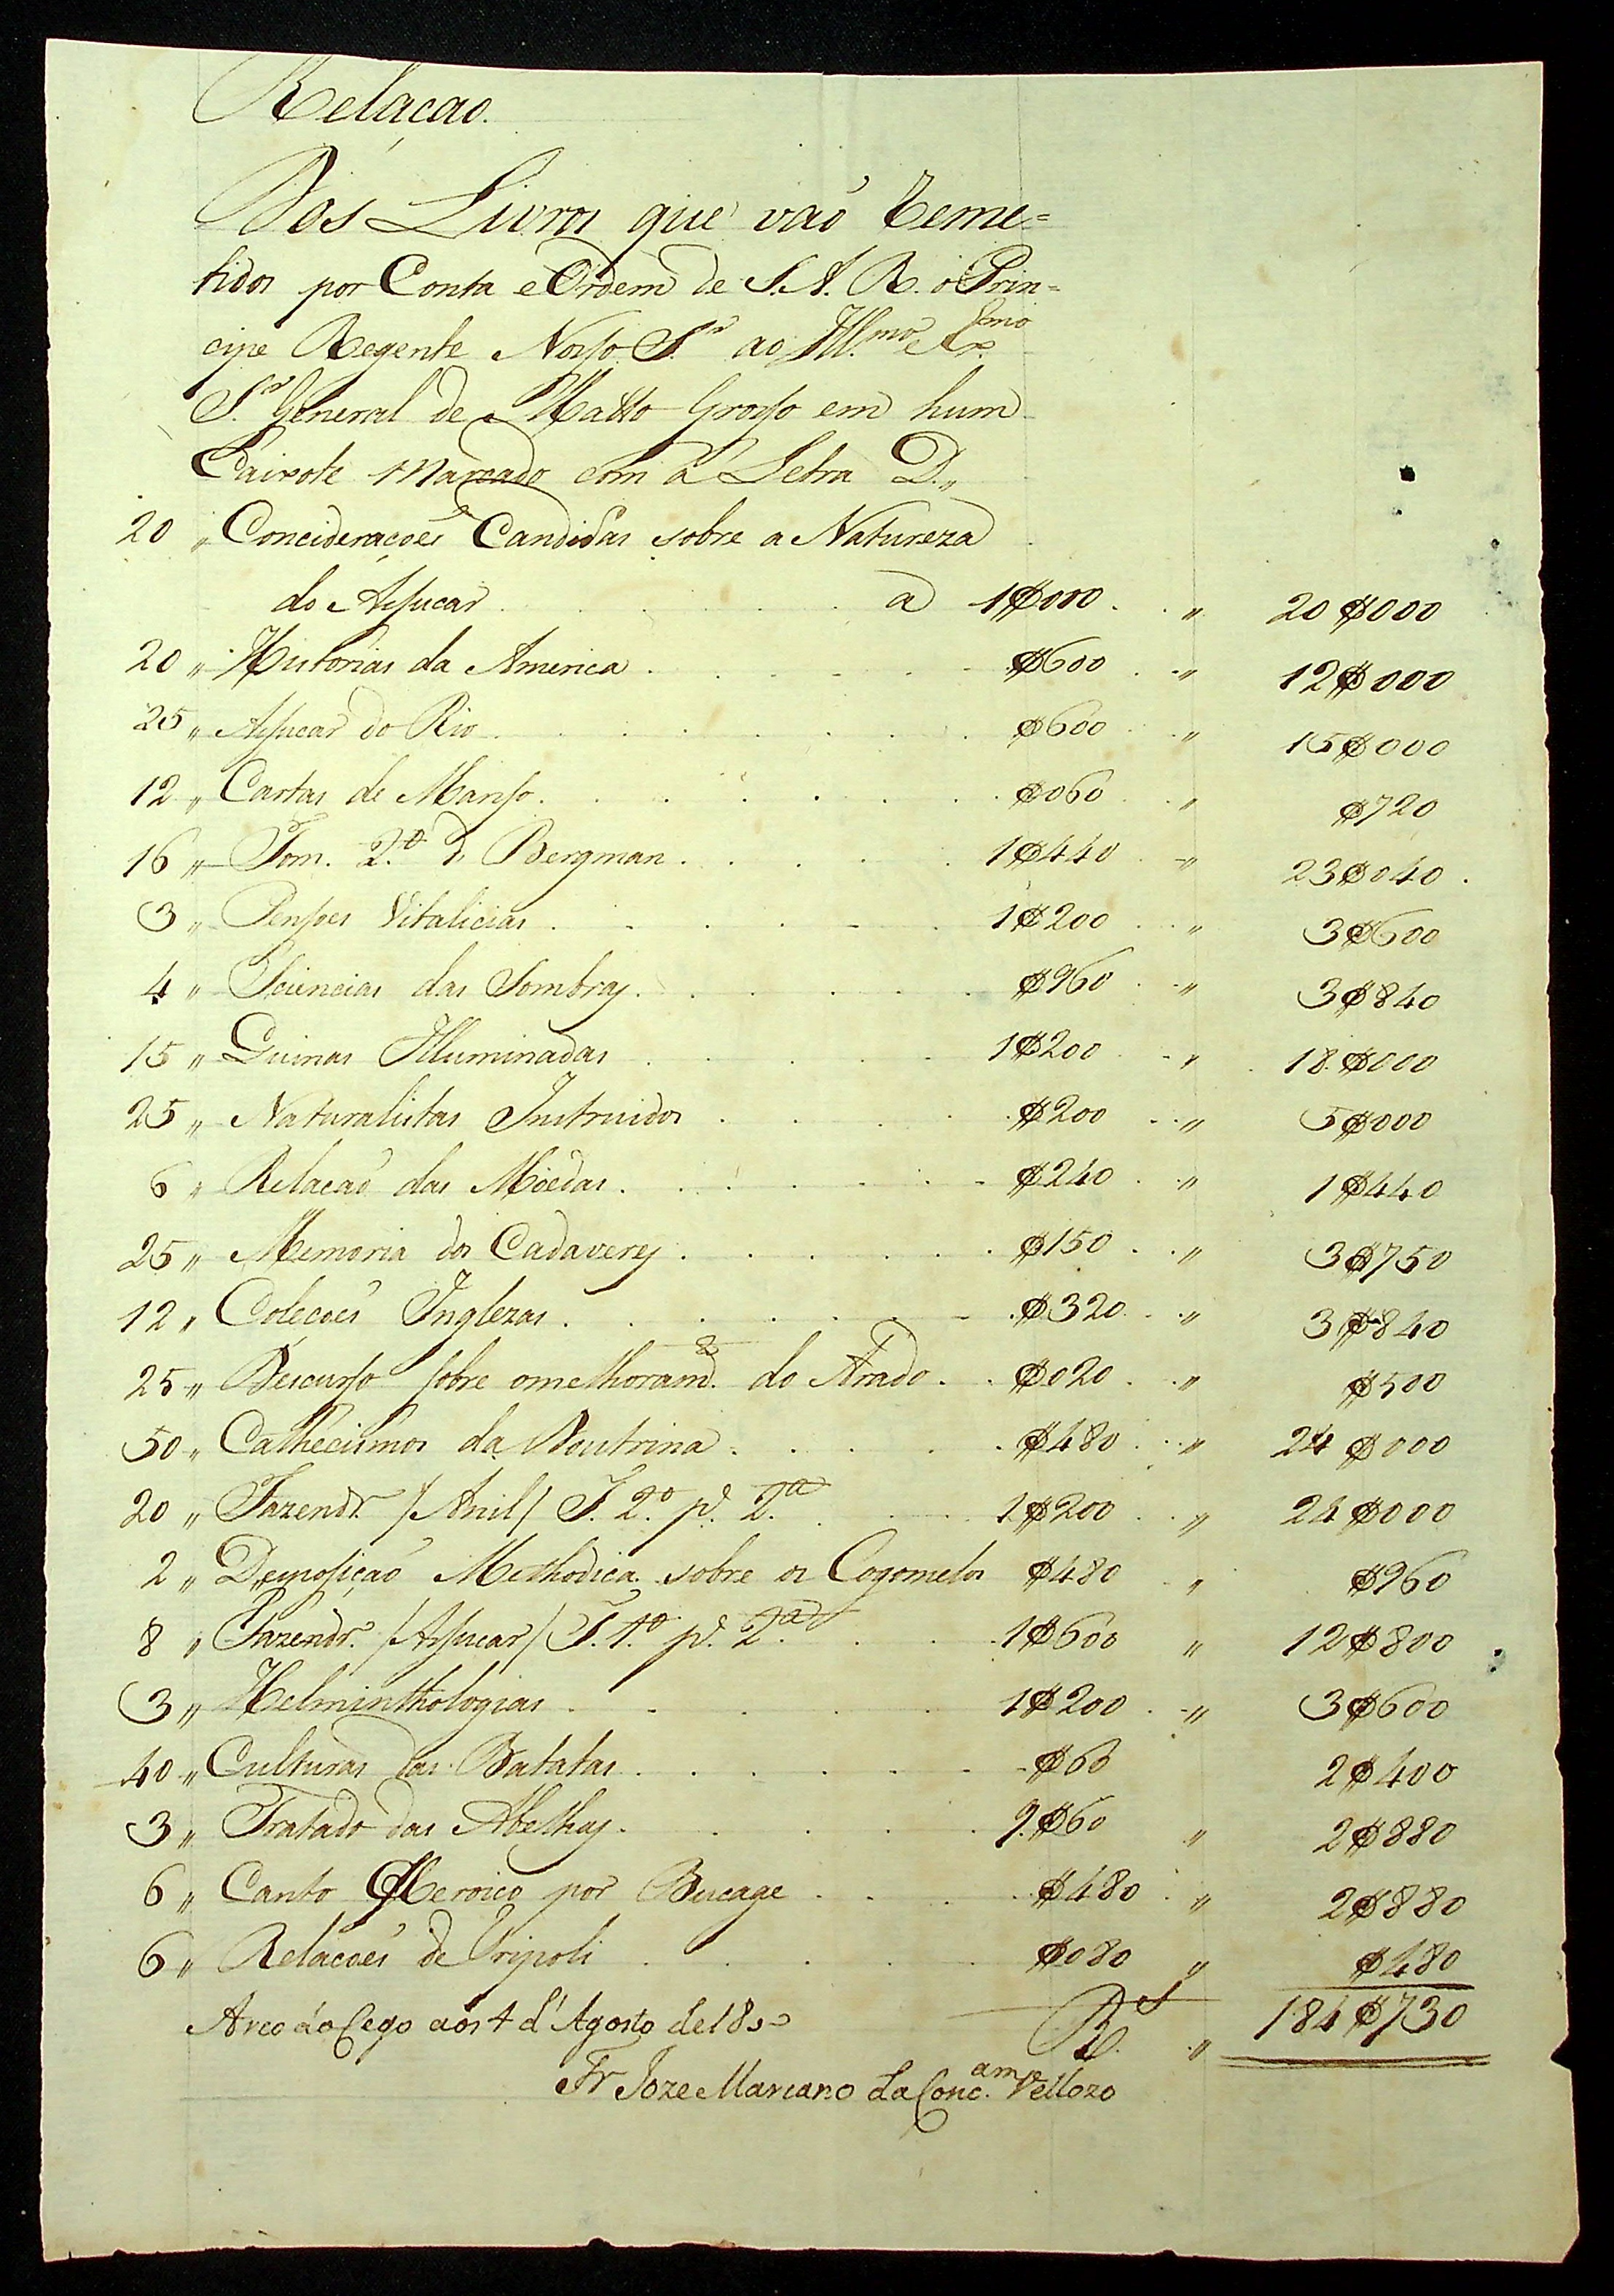 Relação.
Dos Livros que vaõ Reme=
tidos por Conta e Ordem de S. A. R. o Prin=
cipe Regente Nosso Sr. ao Illmo. e Exmo.
Sr. General de Matto Grosso em hum
Caixote Marcado com a Letra D.,,
20 ,, Concideraçoẽs Candidas sobre a Natureza
do Assucar . . . . a 1$000 . ,, 20$000
20 ,, Historias da America . . . . $600 . ,, 12$000
25 ,, Assucar do Rio . . . . $600 . ,, 15$000
12 ,, Cartas de Manso . . . . $060 . ,, $720
16 ,, Tom. 2.º d. Bergman . . . . 1$440 . ,, 23$040 .
3 ,, Pensoes Vitalicias . . . . 1$200 . ,, 3$600
4 ,, Sciencias das Sombras . . . . $960 . ,, 3$840
15 ,, Quinas Illuminadas . . . . 1$200 . ,, 18$000
25 ,, Naturalistas Instruidos . . . . $200 . ,, 5$000
6 ,, Relacaõ das Moedas . . . . $240 . ,, 1$440
25 ,, Memoria dos Cadaveres . . . . $150 . ,, 3$750
12 ,, Coleçoẽs Inglezas . . . . $320 . ,, 3$840
25 ,, Descurso sobre o melhoramo. do Arado . . $020 . ,, $500
50 ,, Cathecismos da Doutrina . . . . $480 . ,, 24$000
20 ,, Fazendr. /Anil/ T. 2.º p. 2.ª . . . 1$200 . ,, 24$000
2 ,, Demosiçaõ Methodica sobre os Cogomelos $480 . ,, $960
8 ,, Fazendr. /Assucar/ T. 1.º p. 2.ª . . . 1$600 ,, 12$800
3 ,, Helminthologias . . . . 1$200 . ,, 3$600
40 ,, Culturas das Batatas . . . . $60 2$400
3 ,, Tratado das Abelhas . . . . 9$60 ,, 2$880
6 ,, Canto Heroico por Bucage . . . . $480 . ,, 2$880
6 ,, Relacoẽs de Tripoli . . . . $080 ,, $480
Rs. ,, 184$730
Arco do Cego aos 4 d'Agosto de 180
Fr Joze Mariano da Conc.am Vellozo